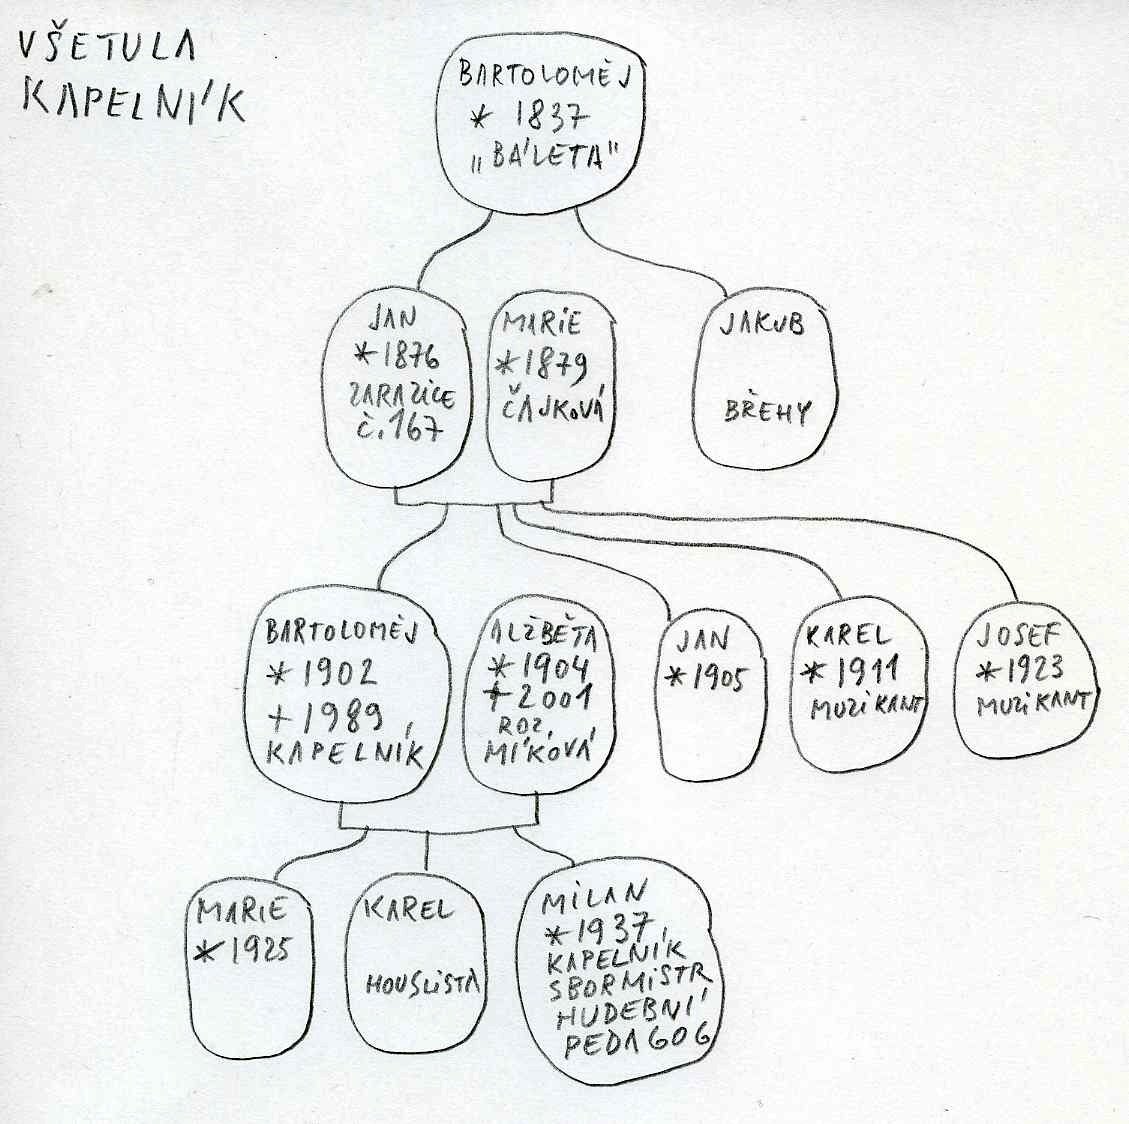 VŠETULA
KAPELNÍK
BARTOLOMĚJ
* 1837
„BÁLETA“
JAN
*1876
ZARAZICE
č.167
MARiE
*1879
ČAJKOVÁ
JAKUB
BŘEHY
BARTOLOMĚJ
* 1902
+ 1989,
KAPELNÍK
ALŽBĚTA
*1904
+2001
ROZ.
MÍKOVÁ
JAN
*1905
KAREL
*1911
MUZiKANT
JOSEF
*1923
MUZiKANT
MARiE
*1925
KAREL
HOUSLiSTA
MiLAN
*1937,
KAPELNÍK
SBORMiSTR
HUDEBNÍ
PEDAGOG